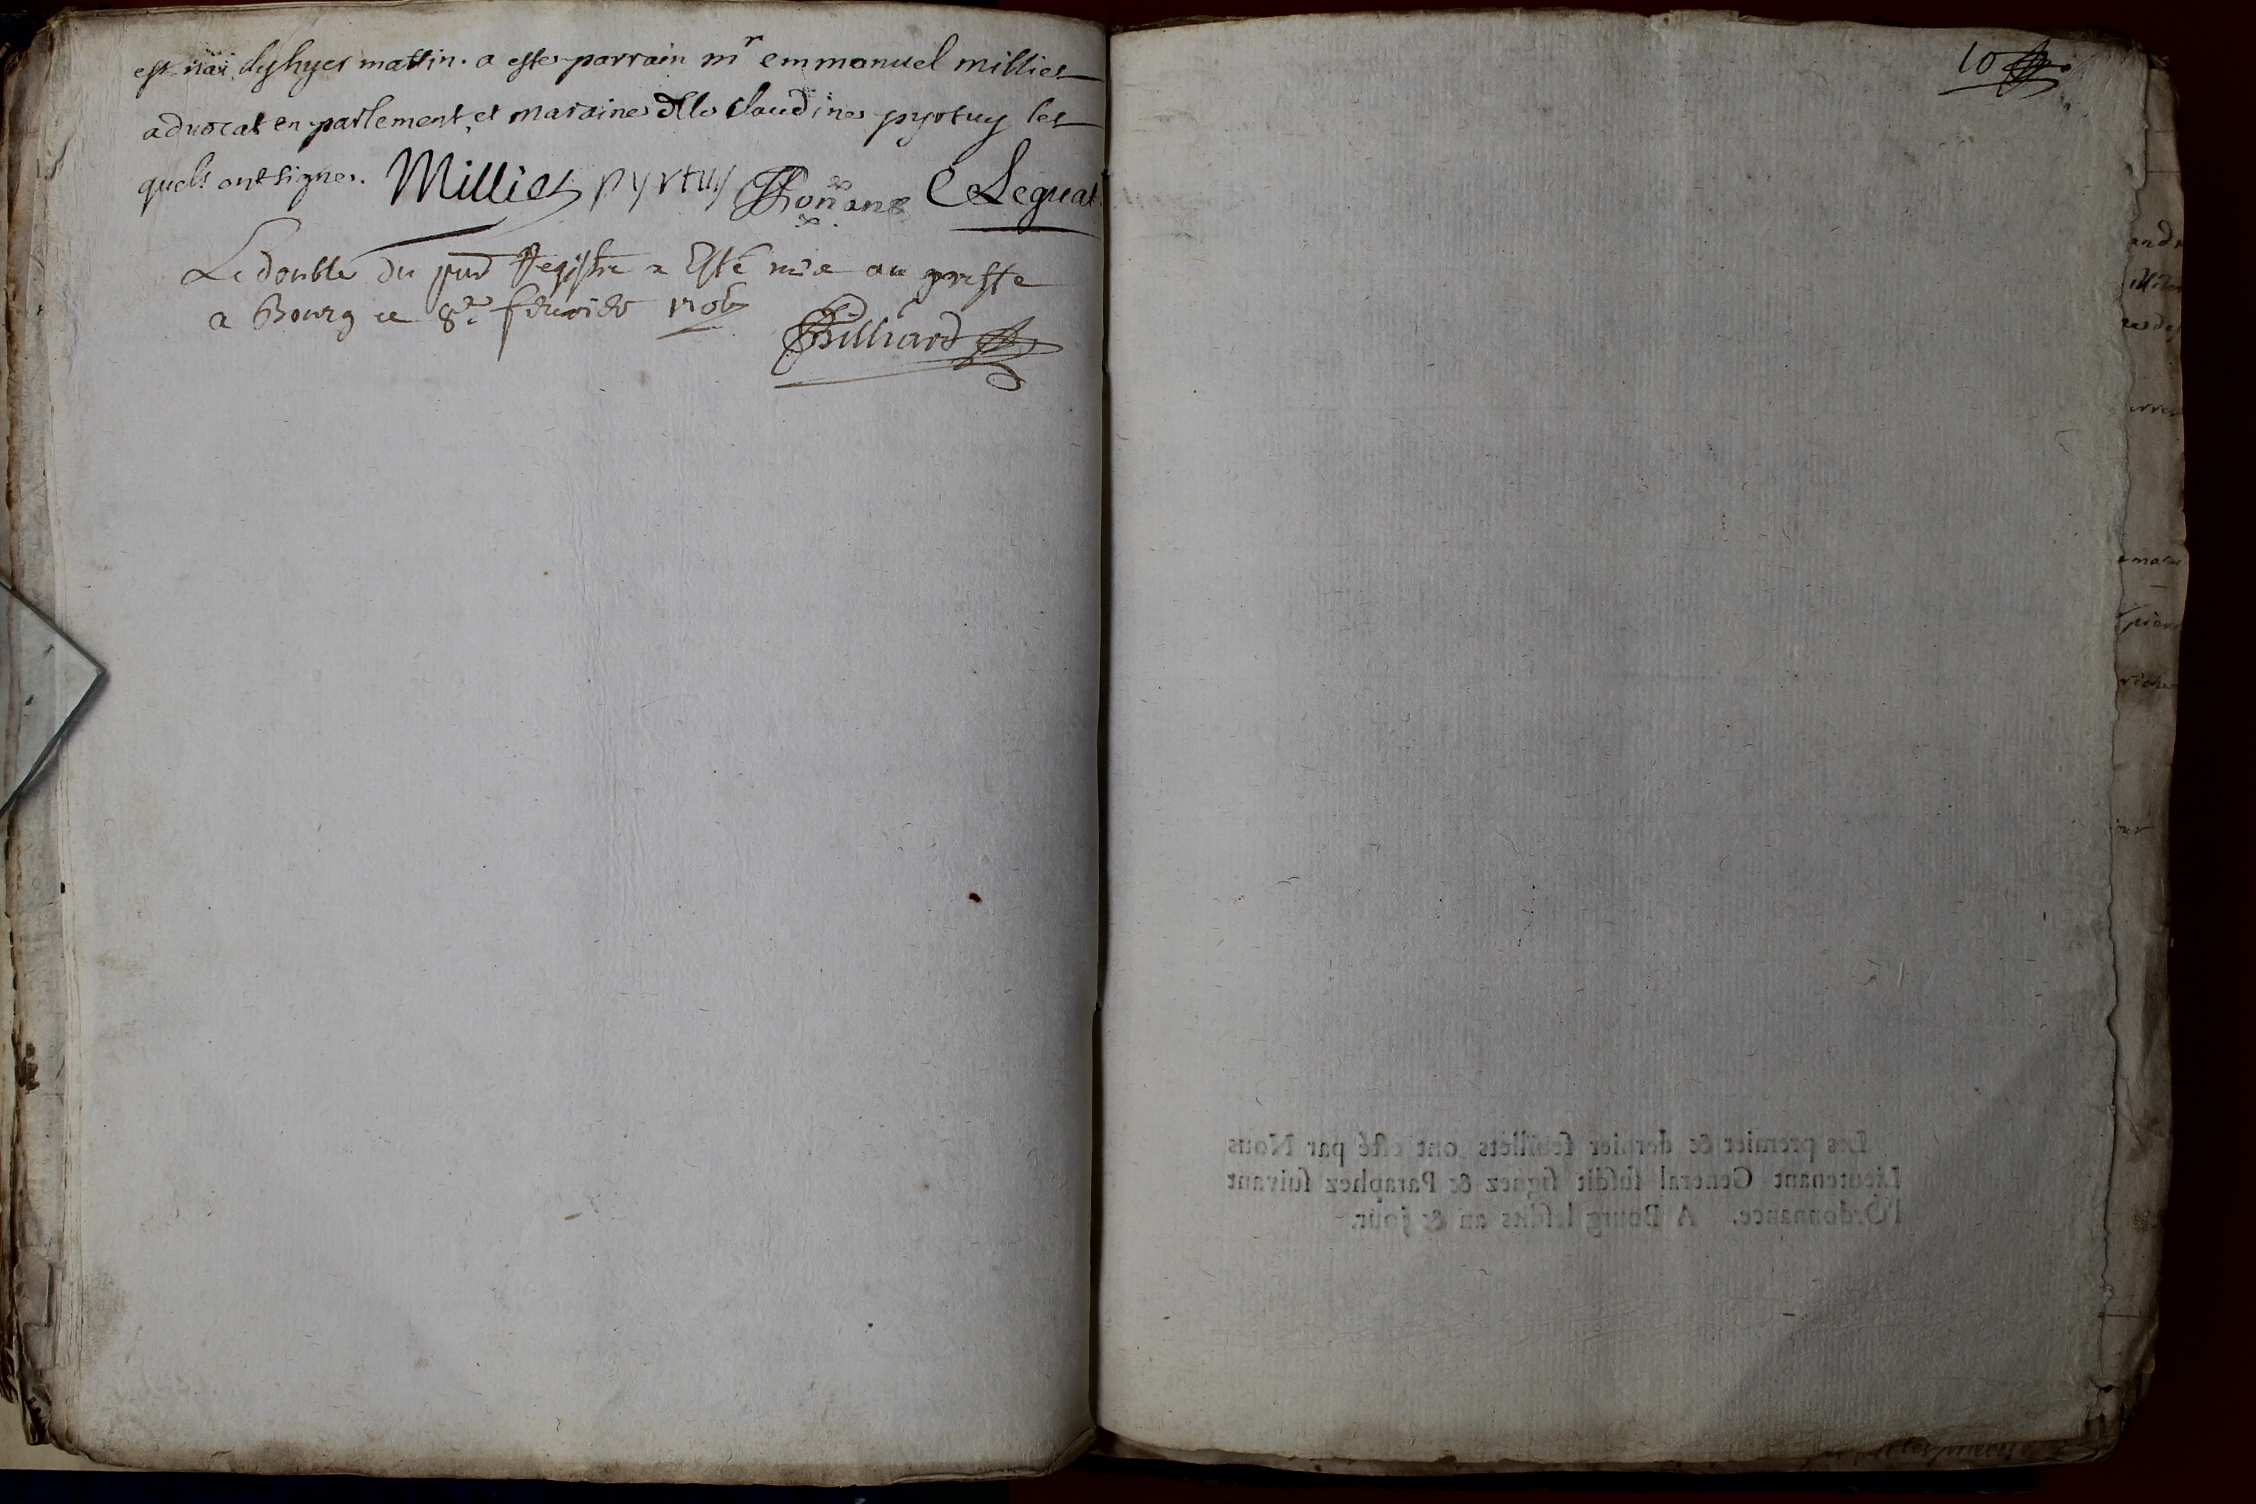 est nai dyhyer mattin. a este parrain mr emmanuel milliet
advocat en parlement, et maraine dlle claudine pyrtuy les
quels ont signe. Milliet pyrtuy C Leguat
Le double du pnt Registre a Esté mis au greffe
a Bourg ce 8e febvrier 1706
Billiard
10
Les premier & dernier feüillets ont esté par Nous
Lieutenant General susdit signez & Paraphez suivant
l'Ordonnance. A Bourg lesdits an & jour.